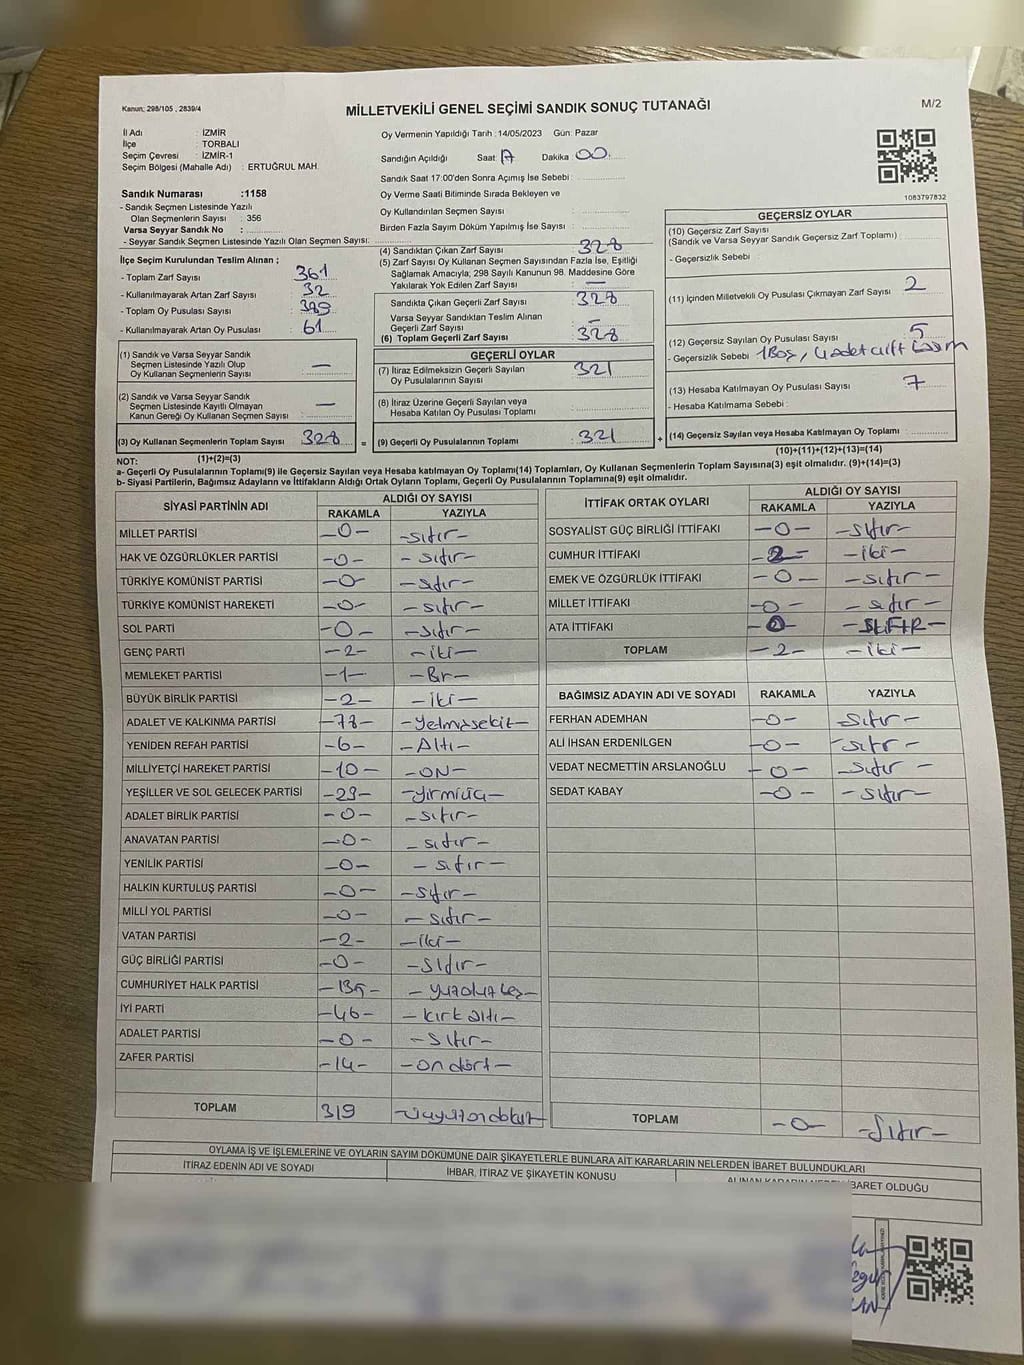 Kanun: 298/105 , 2839/4
MİLLETVEKİLİ GENEL SEÇİMİ SANDIK SONUÇ TUTANAĞI
M/2
İl Adı : İZMİR
İlçe : TORBALI
Seçim Çevresi : İZMİR-1
Seçim Bölgesi (Mahalle Adı) : ERTUĞRUL MAH.
Oy Vermenin Yapıldığı Tarih :14/05/2023 Gün: Pazar
Sandığın Açıldığı Saat 17 Dakika 00
Sandık Saat 17:00'den Sonra Açımış İse Sebebi :
Oy Verme Saati Bitiminde Sırada Bekleyen ve
Oy Kullandırılan Seçmen Sayısı :
Birden Fazla Sayım Döküm Yapılmış İse Sayısı :
1083797832
Sandık Numarası :1158
- Sandık Seçmen Listesinde Yazılı
Olan Seçmenlerin Sayısı : 356
Varsa Seyyar Sandık No :
- Seyyar Sandık Seçmen Listesinde Yazılı Olan Seçmen Sayısı:
İlçe Seçim Kurulundan Teslim Alınan ;
- Toplam Zarf Sayısı : 361
- Kullanılmayarak Artan Zarf Sayısı : 32
- Toplam Oy Pusulası Sayısı : 389
- Kullanılmayarak Artan Oy Pusulası : 61
(1) Sandık ve Varsa Seyyar Sandık
Seçmen Listesinde Yazılı Olup
Oy Kullanan Seçmenlerin Sayısı : —
(2) Sandık ve Varsa Seyyar Sandık
Seçmen Listesinde Kayıtlı Olmayan
Kanun Gereği Oy Kullanan Seçmen Sayısı : —
(3) Oy Kullanan Seçmenlerin Toplam Sayısı 328 =
(1)+(2)=(3)
(4) Sandıktan Çıkan Zarf Sayısı : 328
(5) Zarf Sayısı Oy Kullanan Seçmen Sayısından Fazla İse, Eşitliği
Sağlamak Amacıyla; 298 Sayılı Kanunun 98. Maddesine Göre
Yakılarak Yok Edilen Zarf Sayısı : —
Sandıkta Çıkan Geçerli Zarf Sayısı : 328
Varsa Seyyar Sandıktan Teslim Alınan
Geçerli Zarf Sayısı : —
(6) Toplam Geçerli Zarf Sayısı : 328
GEÇERLİ OYLAR
(7) İtiraz Edilmeksizin Geçerli Sayılan
Oy Pusulalarının Sayısı : 321
(8) İtiraz Üzerine Geçerli Sayılan veya
Hesaba Katılan Oy Pusulası Toplamı :
(9) Geçerli Oy Pusulalarının Toplamı : 321 +
GEÇERSİZ OYLAR
(10) Geçersiz Zarf Sayısı
(Sandık ve Varsa Seyyar Sandık Geçersiz Zarf Toplamı) :
- Geçersizlik Sebebi :
(11) İçinden Milletvekili Oy Pusulası Çıkmayan Zarf Sayısı : 2
(12) Geçersiz Sayılan Oy Pusulası Sayısı : 5
- Geçersizlik Sebebi : 1 Boş, 4 adet çift basım
(13) Hesaba Katılmayan Oy Pusulası Sayısı : 7
- Hesaba Katılmama Sebebi :
(14) Geçersiz Sayılan veya Hesaba Katılmayan Oy Toplamı :
(10)+(11)+(12)+(13)=(14)
NOT:
a- Geçerli Oy Pusulalarının Toplamı(9) ile Geçersiz Sayılan veya Hesaba katılmayan Oy Toplamı(14) Toplamları, Oy Kullanan Seçmenlerin Toplam Sayısına(3) eşit olmalıdır. (9)+(14)=(3)
b- Siyasi Partilerin, Bağımsız Adayların ve İttifakların Aldığı Ortak Oyların Toplamı, Geçerli Oy Pusulalarının Toplamına(9) eşit olmalıdır.
SİYASİ PARTİNİN ADI ALDIĞI OY SAYISI
RAKAMLA YAZIYLA
MİLLET PARTİSİ -0- -sıfır-
HAK VE ÖZGÜRLÜKLER PARTİSİ -0- -sıfır-
TÜRKİYE KOMÜNİST PARTİSİ -0- -sıfır-
TÜRKİYE KOMÜNİST HAREKETİ -0- -sıfır-
SOL PARTİ -0- -sıfır-
GENÇ PARTİ -2- -iki-
MEMLEKET PARTİSİ -1- -Bir-
BÜYÜK BİRLİK PARTİSİ -2- -iki-
ADALET VE KALKINMA PARTİSİ -78- -yetmişsekiz-
YENİDEN REFAH PARTİSİ -6- -Altı-
MİLLİYETÇİ HAREKET PARTİSİ -10- -ON-
YEŞİLLER VE SOL GELECEK PARTİSİ -23- -yirmiüç-
ADALET BİRLİK PARTİSİ -0- -sıfır-
ANAVATAN PARTİSİ -0- -sıfır-
YENİLİK PARTİSİ -0- -sıfır-
HALKIN KURTULUŞ PARTİSİ -0- -sıfır-
MİLLİ YOL PARTİSİ -0- -sıfır-
VATAN PARTİSİ -2- -iki-
GÜÇ BİRLİĞİ PARTİSİ -0- -sıfır-
CUMHURİYET HALK PARTİSİ -135- -yüzotuzbeş-
İYİ PARTİ -46- -kırkaltı-
ADALET PARTİSİ -0- -sıfır-
ZAFER PARTİSİ -14- -on dört-
TOPLAM 319 -üçyüzondokuz-
İTTİFAK ORTAK OYLARI ALDIĞI OY SAYISI
RAKAMLA YAZIYLA
SOSYALİST GÜÇ BİRLİĞİ İTTİFAKI -0- -sıfır-
CUMHUR İTTİFAKI -2- -iki-
EMEK VE ÖZGÜRLÜK İTTİFAKI -0- -sıfır-
MİLLET İTTİFAKI -0- -sıfır-
ATA İTTİFAKI -0- -SIFIR-
TOPLAM -2- -iki-
BAĞIMSIZ ADAYIN ADI VE SOYADI RAKAMLA YAZIYLA
FERHAN ADEMHAN -0- -sıfır-
ALİ İHSAN ERDENİLGEN -0- -sıfır-
VEDAT NECMETTİN ARSLANOĞLU -0- -sıfır-
SEDAT KABAY -0- -sıfır-
TOPLAM -0- -Sıfır-
OYLAMA İŞ VE İŞLEMLERİNE VE OYLARIN SAYIM DÖKÜMÜNE DAİR ŞİKAYETLERLE BUNLARA AİT KARARLARIN NELERDEN İBARET BULUNDUKLARI
İTİRAZ EDENİN ADI VE SOYADI İHBAR, İTİRAZ VE ŞİKAYETİN KONUSU ALINAN KARARIN NEDEN İBARET OLDUĞU